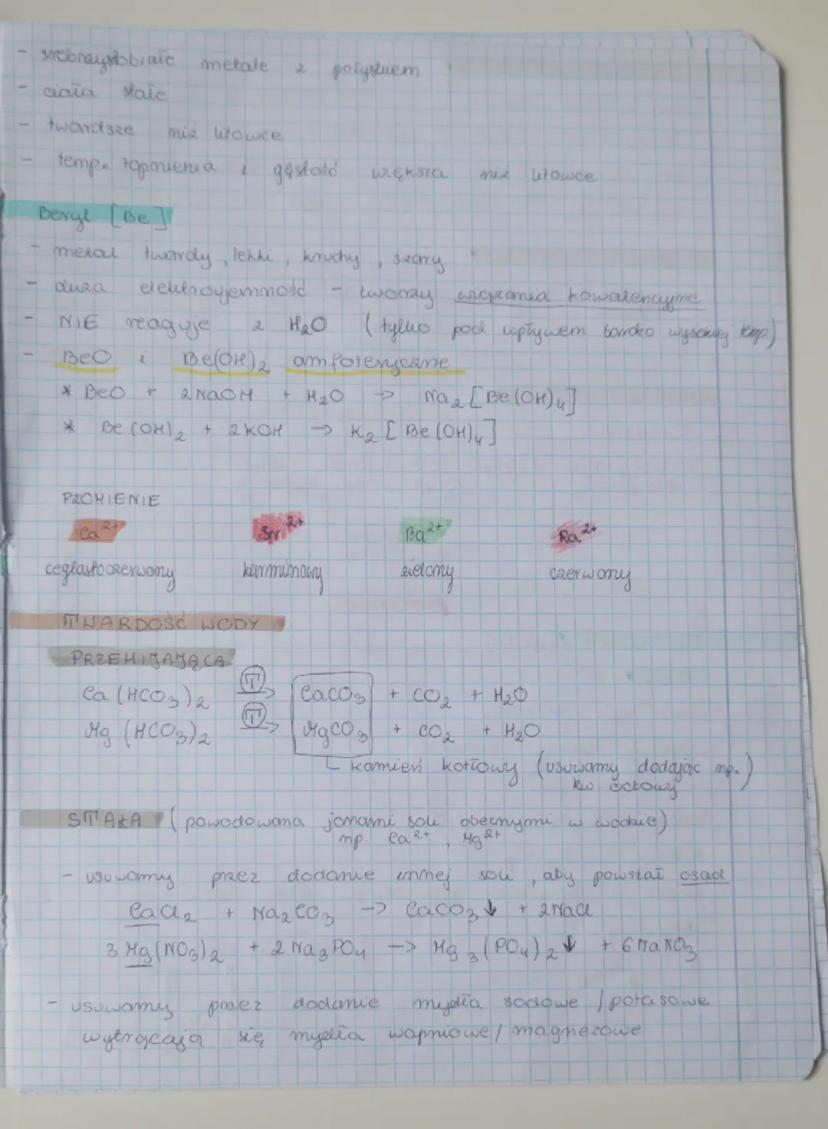 - srebrzystobiałe metale z połyskiem
- ciała stałe
- twardsze niż litowce
- temp. topnienia i gęstość większa niż litowce
Beryl [Be]
- metal twardy, lekki, kruchy, szary
- duża elektroujemność - tworzy wiązania kowalencyjne
- NIE reaguje z H₂O (tylko pod wpływem bardzo wysokiej temp)
- BeO i Be(OH)₂ amfoteryczne
* BeO + 2NaOH + H₂O → Na₂[Be(OH)₄]
* Be(OH)₂ + 2KOH → K₂[Be(OH)₄]
PŁOMIENIE
Ca²⁺ Sr²⁺ Ba²⁺ Ra²⁺
ceglastoczerwony karminowy zielony czerwony
TWARDOŚĆ WODY
PRZEMIJAJĄCA
Ca(HCO₃)₂ –T→ CaCO₃ + CO₂ + H₂O
Mg(HCO₃)₂ –T→ MgCO₃ + CO₂ + H₂O
kamień kotłowy (usuwamy dodając np.
kw octowy)
STAŁA (powodowana jonami soli obecnymi w wodzie)
np Ca²⁺, Mg²⁺
- usuwamy przez dodanie innej soli, aby powstał osad
CaCl₂ + Na₂CO₃ → CaCO₃↓ + 2NaCl
3Mg(NO₃)₂ + 2Na₃PO₄ → Mg₃(PO₄)₂↓ + 6NaNO₃
- usuwamy przez dodanie mydła sodowe / potasowe
wytrącają się mydła wapniowe / magnezowe